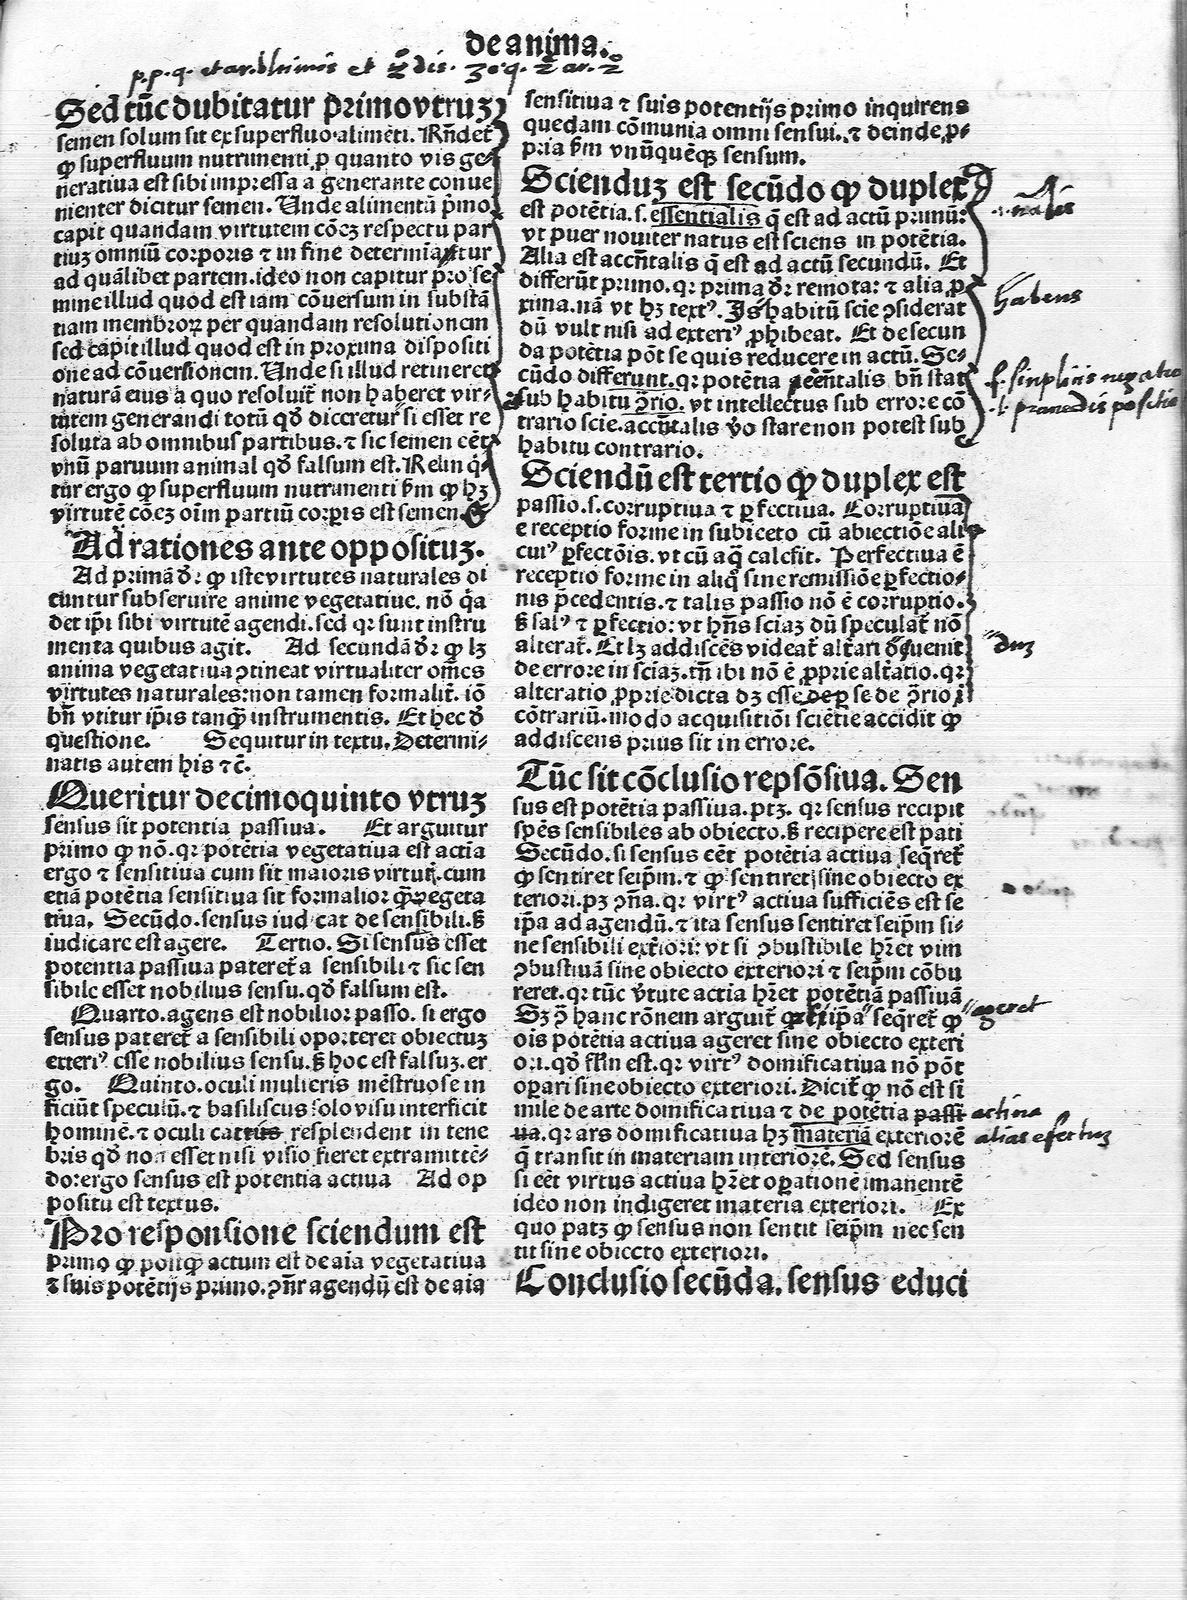 de anima.
p.p.q. et ar. vltimis et
Sed tūc dubitatur primo vtruꝫ
semen solum sit ex superfluo alimēti. Rn̄det̄
ꝙ superfluum nutrimenti ꝓ quanto vis ge⸗
neratiua est sibi impressa a generante conue
nienter dicitur semen. Unde alimentū p̄mo
capit quandam virtutem cōeꝫ respectu par
tiuꝫ omniū corporis ⁊ in fine determīatur
ad quālibet partem. ideo non capitur pro se
mine illud quod est iam cōuersum in substā
tiam membroꝝ per quandam resolutionem
sed capit illud quod est in proxima dispositi
one ad cōuersionem. Unde si illud retineret
naturā eius a quo resoluit̄ non haberet vir⸗
tutem generandi totū qd̄ diceretur si esset re
soluta ab omnibus partibus. ⁊ sic semen eēt
vnū paruum animal qd̄ falsum est. Relinq̄⸗
tur ergo ꝙ superfluum nutrimenti ẜm ꝙ hꝫ
virtutē cōeꝫ oīm partiū corꝑis est semen.
Ad rationes ante opposituꝫ.
Ad primā dr̄ ꝙ iste virtutes naturales di
cuntur subseruire anime vegetatiue. nō q̄a
det ip̄i sibi virtutē agendi. sed qꝛ sunt instru
menta quibus agit. Ad secundā dr̄ ꝙ lꝫ
anima vegetatiua ꝯtineat virtualiter om̄es
virtutes naturales: non tamen formalit̄. iō
bn̄ vtitur ip̄is tanq̄ȝ instrumentis. Et hec d̄
questione. Sequitur in textu. Determi⸗
natis autem his ⁊c̄.
Queritur decimoquinto vtruꝫ
sensus sit potentia passiua. Et arguitur
primo ꝙ nō. qꝛ potētia vegetatiua est actīa
ergo ⁊ sensitiua cum sit maioris virtut̄. cum
etiā potētia sensitiua sit formalior q̄ȝ vegeta
tiua. Secūdo. sensus iudicat de sensibili. ẜ
iudicare est agere. Tertio. Si sensus esset
potentia passiua pateret̄ a sensibili ⁊ sic sen
sibile esset nobilius sensu. qd̄ falsum est.
Quarto. agens est nobilior passo. si ergo
sensus pateret̄ a sensibili oporteret obiectuꝫ
exteriꝰ esse nobilius sensu. ẜ hoc est falsuꝫ. er
go. Quinto. oculi mulieris mēstruose in
ficiūt speculū. ⁊ basiliscus solo visu interficit
hominē. ⁊ oculi resplendent in tene
bris qd̄ non esset nisi visio fieret extramittē⸗
do: ergo sensus est potentia actiua Ad op
positū est textus.
Pro responsione sciendum est
primo ꝙ postꝙ̄ actum est de aīa vegetatiua
⁊ suis potētijs primo. ꝯn̄r agendū est de aīa
sensitiua ⁊ suis potentijs primo inquirens
quedam cōmunia omni sensui. ⁊ deinde ꝓ⸗
pria ẜm vnūquēqꝫ sensum.
Sciendūꝫ est secūdo ꝙ duplex
est potētia. s. essentialis q̄ est ad actū primū:
vt puer nouiter natus est sciens in potētia.
Alia est accn̄talis q̄ est ad actū secundū. Et
differūt primo. qꝛ prima dr̄ remota: ⁊ alia ꝓ
xima. nā vt hꝫ textꝰ. Is habitū scīe ꝯsiderat
dū vult nisi ad exteriꝰ ꝓhibeat. Et de secun
da potētia pōt se quis reducere in actū. Se⸗
cūdo differunt. qꝛ potētia eēntalis bn̄ stat
sub habitu ꝯrio. vt intellectus sub errore cō
trario scīe. accn̄talis v̄o stare non potest sub
habitu contrario.
Sciendū est tertio ꝙ duplex est
passio. s. corruptiua ⁊ ꝑfectiua. Corruptiua
e receptio forme in subiecto cū abiectiōe ali
cuiꝰ ꝑfectōis. vt cū aq̄ calefit. Perfectiua ē
receptio forme in aliq̄ sine remissiōe ꝑfectio⸗
nis p̄cedentis. ⁊ talis passio nō ē corruptio.
ẜ salꝰ ⁊ ꝑfectio: vt hn̄s sciaꝫ dū speculat̄ nō
alterat̄. Et lꝫ addiscēs videat̄ alt̄ari
de errore in sciaꝫ. tn̄ ibi nō ē ꝓprie alt̄atio. qꝛ
alteratio ꝓprie dicta dꝫ esse de ꝑ se de ꝯrio ī
cōtrariū. modo acquisitiōi scīetie accidit ꝙ
addiscens prius sit in errore.
Tūc sit cōclusio repsōsiua. Sen
sus est potētia passiua. ptꝫ. qꝛ sensus recipit
spēs sensibiles ab obiecto. ẜ recipere est pati
Secūdo. si sensus eēt potētia actiua seq̄ret̄
ꝙ sentiret seip̄m. ⁊ ꝙ sentiret sine obiecto ex
teriori. pꝫ ꝯn̄a. qꝛ virtꝰ actiua sufficiēs est se
ip̄a ad agendū. ⁊ ita sensus sentiret seip̄m si⸗
ne sensibili ext̄iori: vt si ꝯbustibile hr̄et vim
ꝯbustiuā sine obiecto exteriori ⁊ seip̄m cōbu
reret. qꝛ tūc v̄tute actīa hr̄et potētiā passiuā
Sꝫ ꝯ hanc rōnem arguit̄ seq̄ret̄ ꝙ
oīs potētia actiua ageret sine obiecto exteri
ori. qd̄ fl̄m est. qꝛ virtꝰ domificatiua nō pōt
opari sine obiecto exteriori. Dicit̄ ꝙ nō est si
mile de arte domificatiua ⁊ de potētia passi
ua. qꝛ ars domificatiua hꝫ materiā exteriorē
q̄ transit in materiam interiorē. Sed sensus
si eēt virtus actiua hr̄et oꝑationē imanentē
ideo non indigeret materia exteriori. Ex
quo patꝫ ꝙ sensus non sentit seip̄m nec sen
tit sine obiecto exteriori.
Conclusio secūda. sensus educi
habens
duꝫ
ageret
actiua
alias efectuꝫ